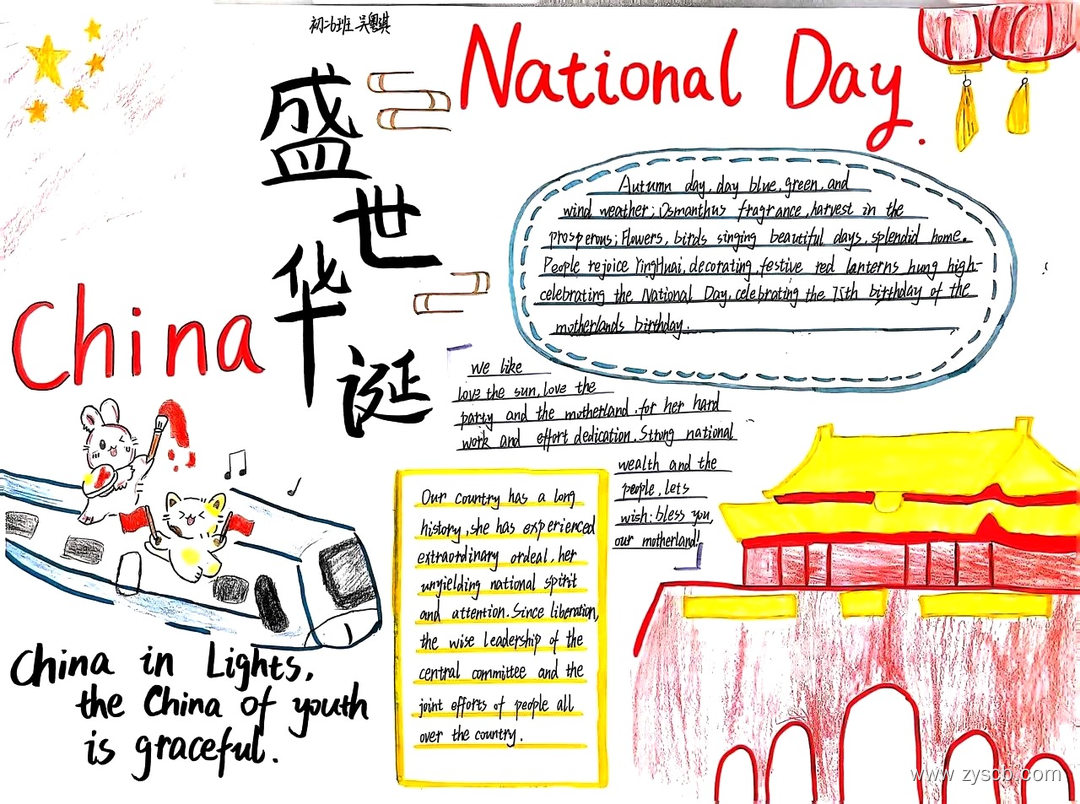 初二6班 吴粤琪
National Day.
盛世华诞
China
Autumn day, day blue, green, and
wind weather; Osmanthus fragrance, harvest in the
prosperous; Flowers, birds singing beautiful days, splendid home.
People rejoice YingHuai, decorating, festive red lanterns hung high-
celebrating the National Day, celebrating the 75th birthday of the
motherlands birthday.
We like
love the sun, love the
party and the motherland. for her hard
work and effort dedication. Strong national
wealth and the
people, lets
wish: bless you,
our motherland!
Our country has a long
history, she has experienced
extraordinary ordeal, her
unyielding national spirit
and attention. Since liberation,
the wise leadership of the
central committee and the
joint efforts of people all
over the country.
China in Lights,
the China of youth
is graceful.
www.zyscb.com